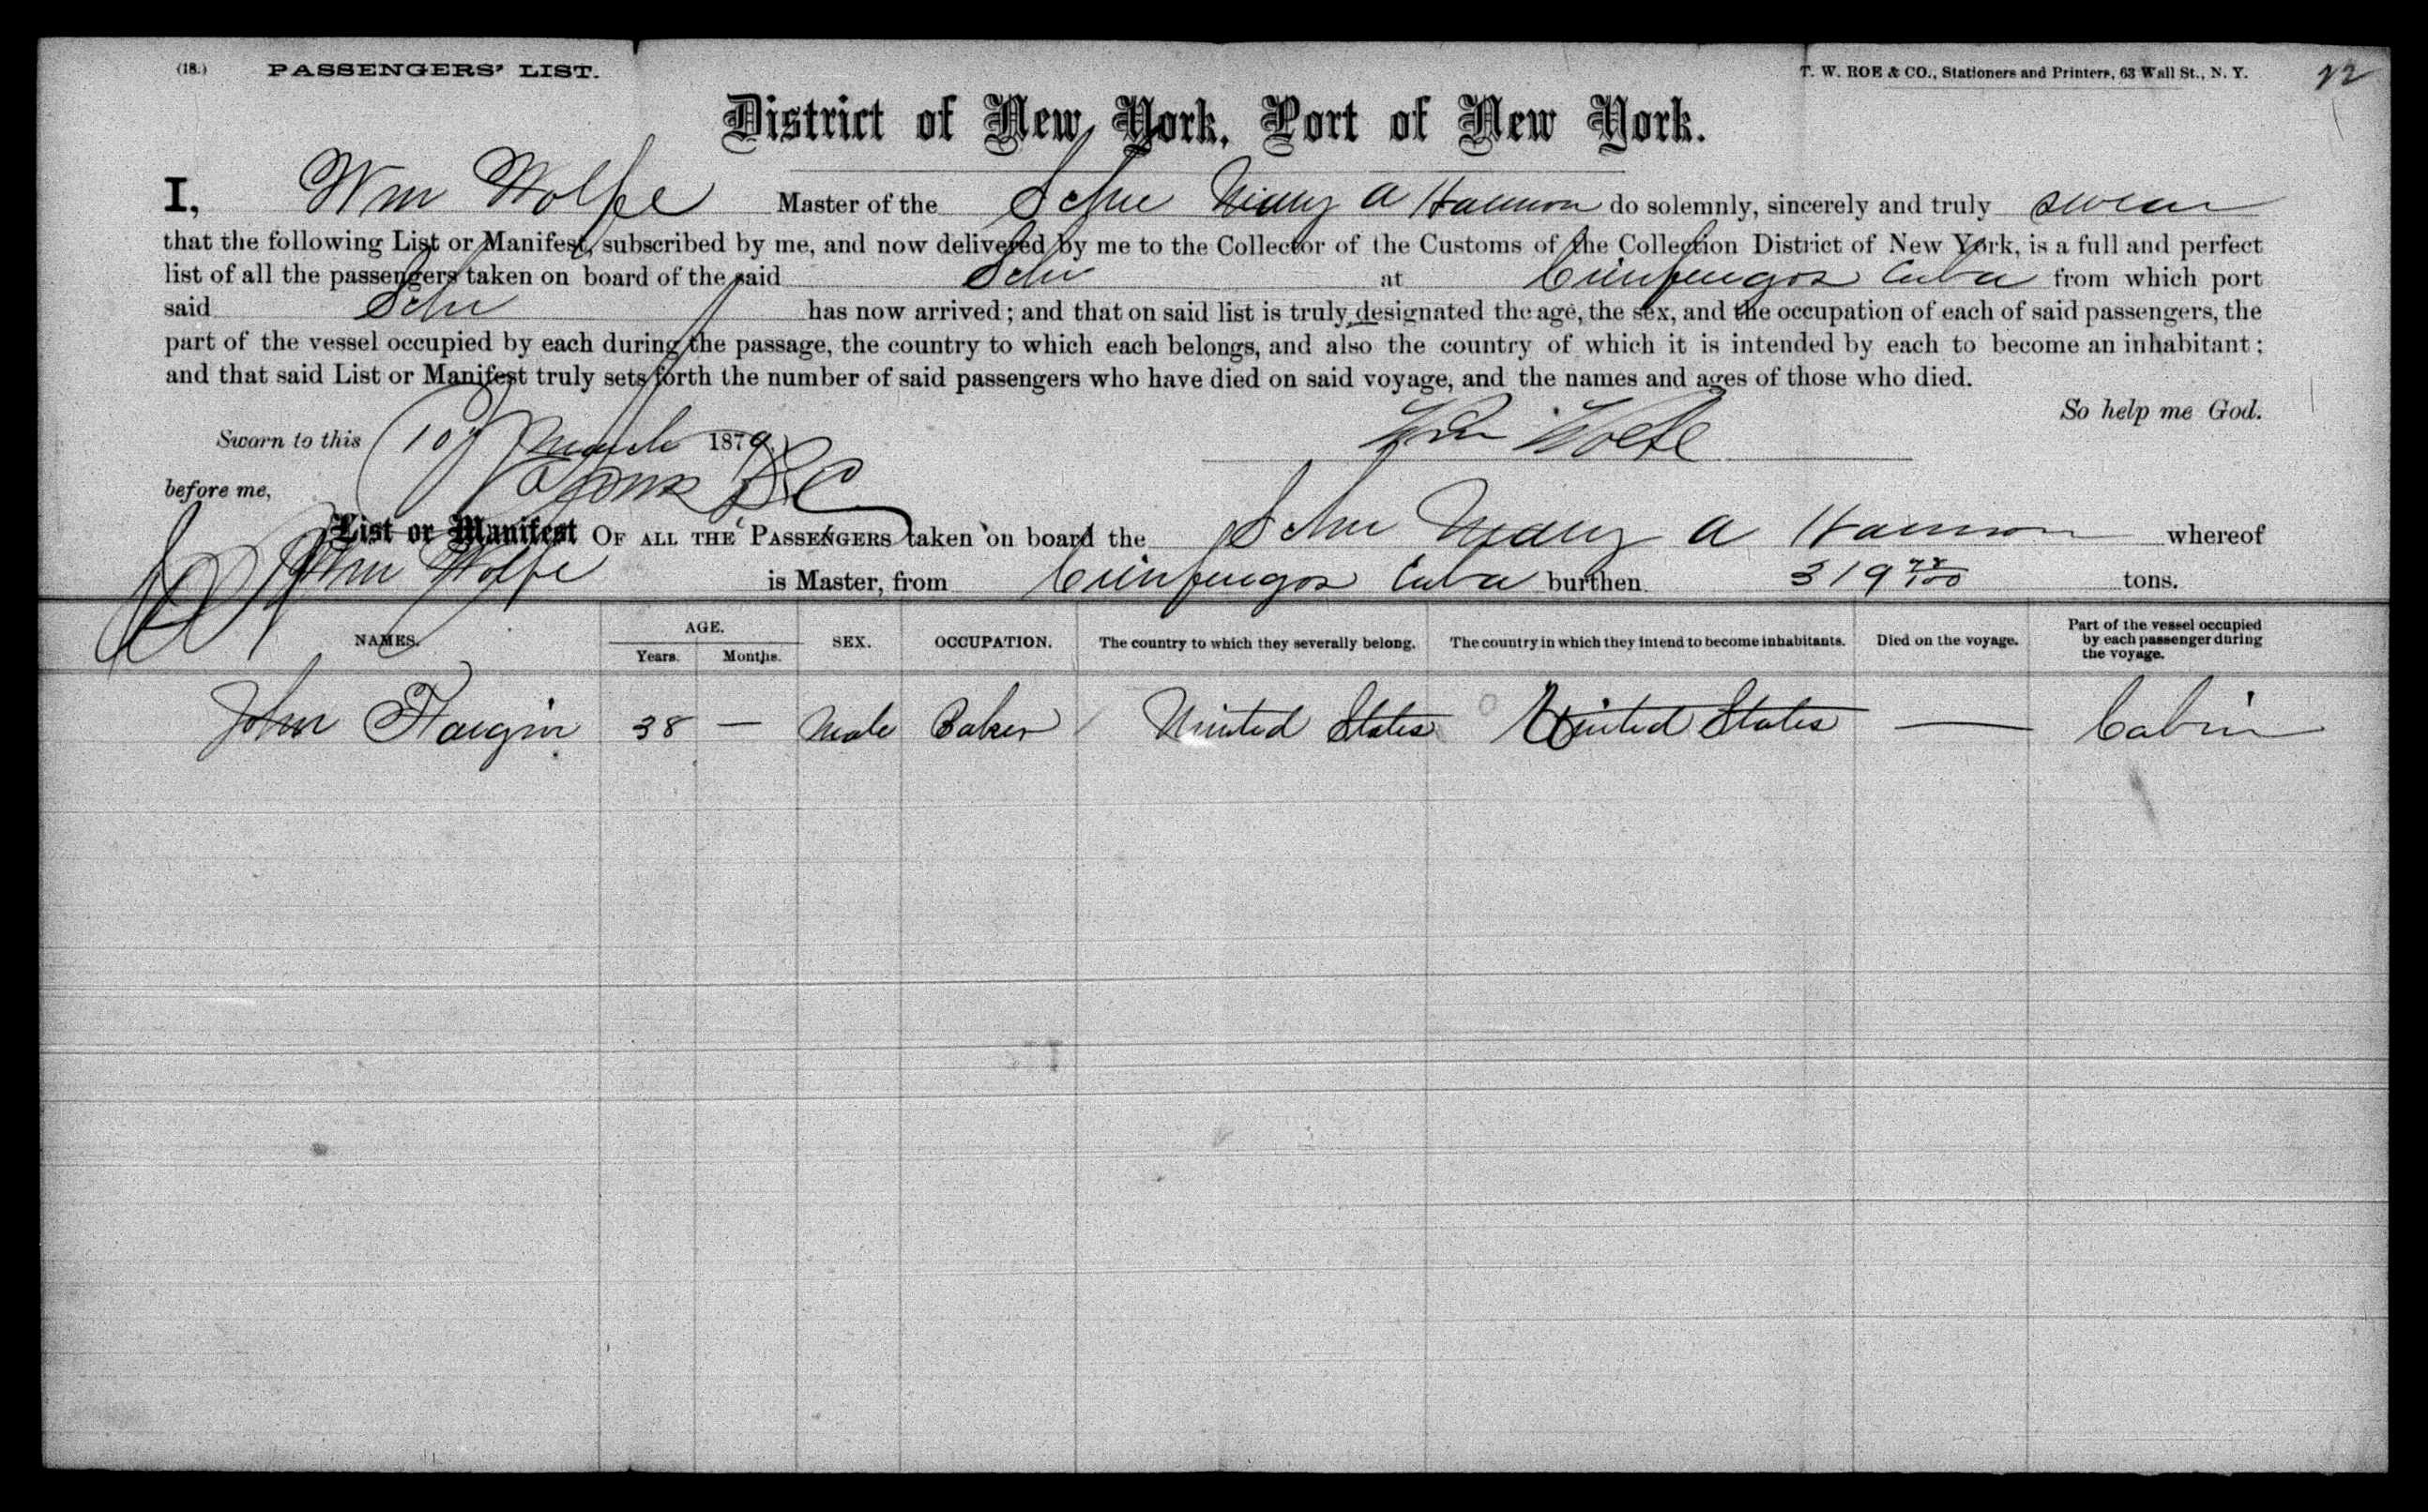 (18.) PASSENGERS' LIST. T. W. ROE & CO., Stationers and Printers, 63 Wall St., N. Y.
District of New York, Port of New York.
I, Wm Wolfe Master of the Schr Mary A Harmon do solemnly, sincerely and truly swear
that the following List or Manifest, subscribed by me, and now delivered by me to the Collector of the Customs of the Collection District of New York, is a full and perfect
list of all the passengers taken on board of the said Schr at Cienfuegos Cuba from which port
said Schr has now arrived; and that on said list is truly designated the age, the sex, and the occupation of each of said passengers, the
part of the vessel occupied by each during the passage, the country to which each belongs, and also the country of which it is intended by each to become an inhabitant;
and that said List or Manifest truly sets forth the number of said passengers who have died on said voyage, and the names and ages of those who died.
So help me God.
Sworn to this 10 March 1879 Wm Wolfe
before me, D C
List or Manifest OF ALL THE PASSENGERS taken on board the Schr Mary A Harmon whereof
Wm Wolfe is Master, from Cienfuegos Cuba burthen 319 tons.
NAMES. AGE. Years. Months. SEX. OCCUPATION. The country to which they severally belong. The country in which they intend to become inhabitants. Died on the voyage. Part of the vessel occupied by each passenger during the voyage.
John Faugin 38 — Male Baker United States United States — Cabin